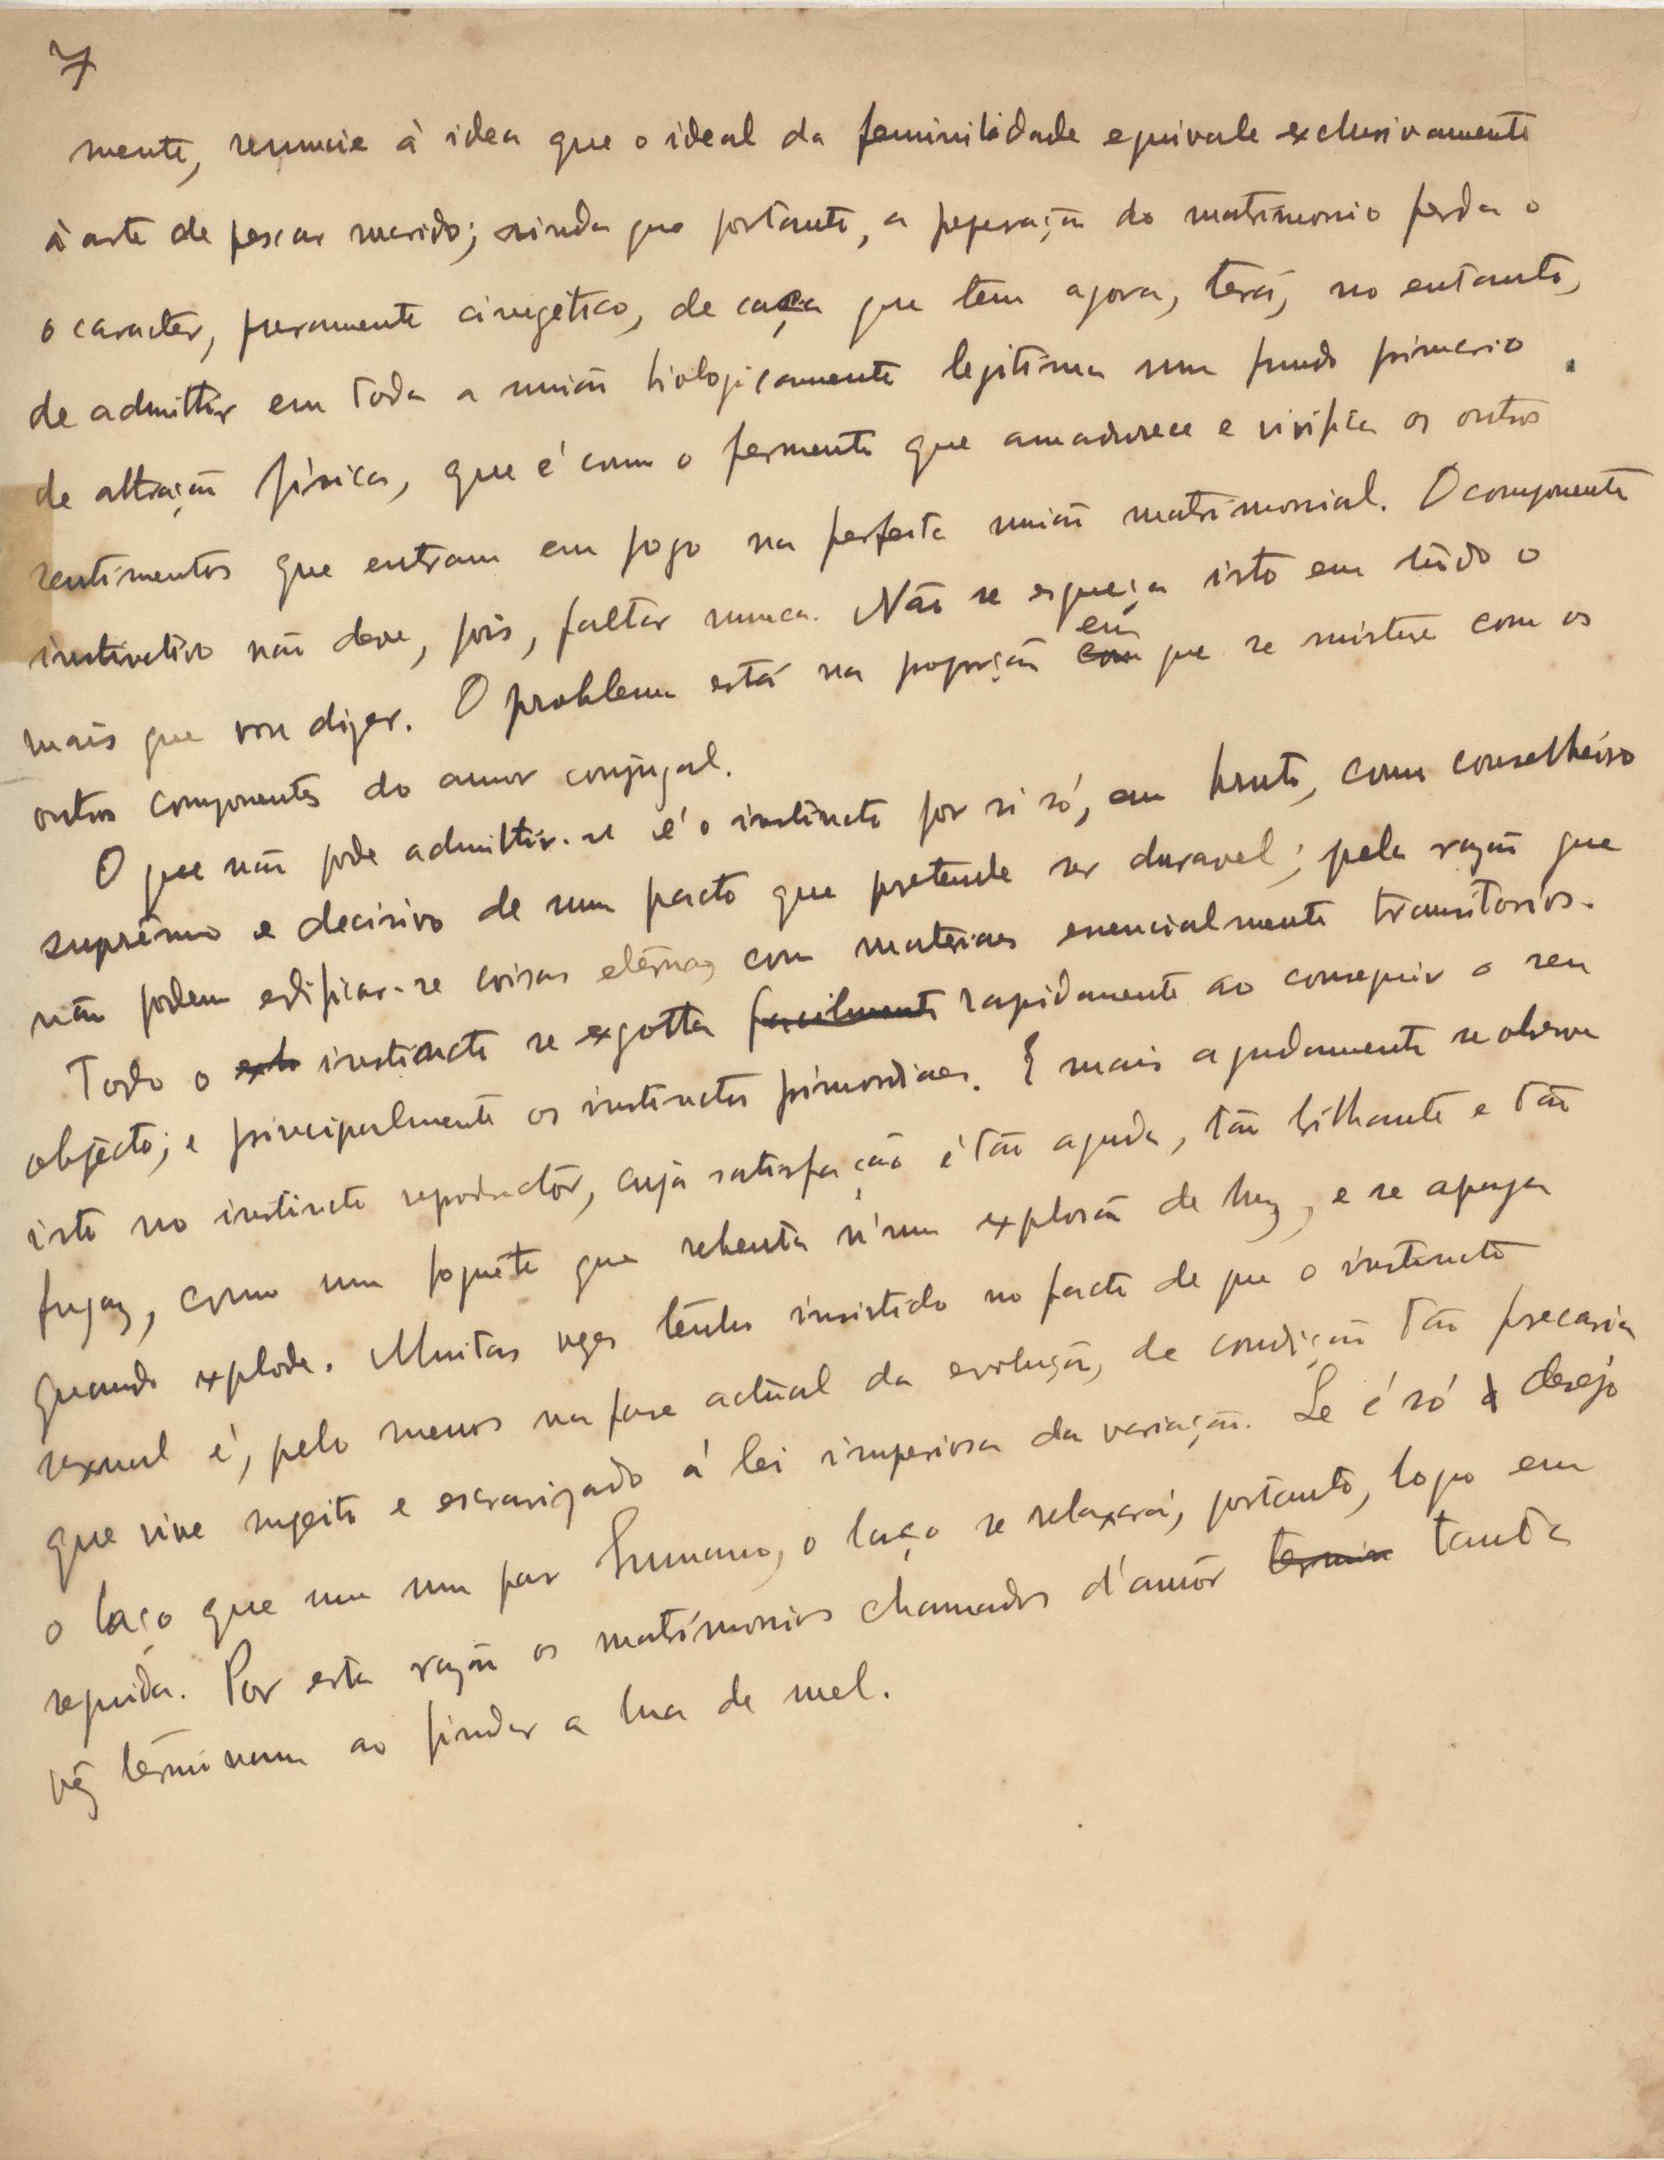 7
mente, renuncie à idea que o ideal da feminilidade equivale exclusivamente
à arte de pescar marido; ainda que portanto, a preparação do matrimonio perda o
o caracter, puramente cinegético, de caça que tem agora, terá, no entanto,
de admittir em toda a união biologicamente legitima um fundo primario
de attração física, que é como o fermento que amadurece e vivifica os outros
sentimentos que entram em jogo na perfeita união matrimonial. O componente
instinctivo não deve, pois, faltar nunca. Não se esqueça isto em túdo o
mais que vou dizer. O problema está na proporção com em que se misture com os
outros componentes do amor conjugal.
O que não pode admittir-se é o instincto por si só, em bruto, como conselheiro
suprêmo e decisivo de um pacto que pretende ser duravel; pela razão que
não podem edificar-se coisas etérnas com materiaes essencialmente transitorios.
Todo o instincto se exgotta facilmente rapidamente ao conseguir o seu
objécto; e principalmente os instinctos primordiaes. E mais agudamente se observa
isto no instincto reproductôr, cuja satisfação é tão aguda, tão brilhante e tão
fugaz, como um foguête que rebenta n'uma explosão de luz, e se apaga
quando explode. Muitas vezes tenho insistido no facto de que o instincto
sexual é, pelo menos na fase actual da evolução, de condição tão precaria
que vive sujeito e escravizado á lei imperiosa da variação. Se é só o desejo
o laço que une um par humano, o laço se relaxará, portanto, logo em
seguida. Por esta razão os matrimonios chamados d'amôr termin tanta
vêz términam ao findar a lua de mel.